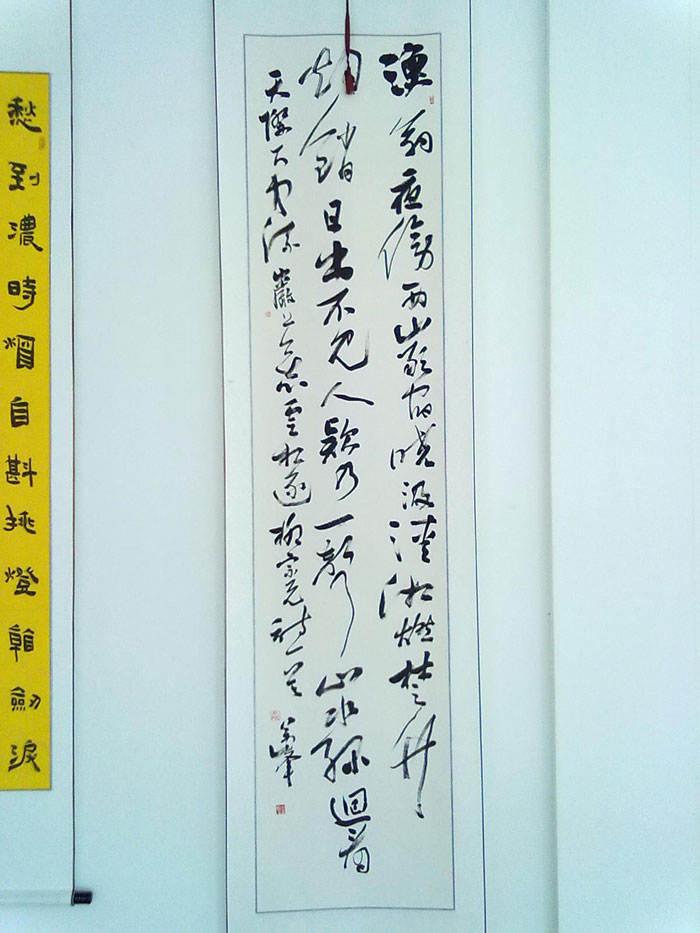 漁翁夜傍西巖宿曉汲清湘燃楚竹
煙銷日出不見人欸乃一聲山水綠迴看
天際下中流巖上無心雲相逐柳宗元詩一首
峰
愁到濃時自斟挑燈看劍淚